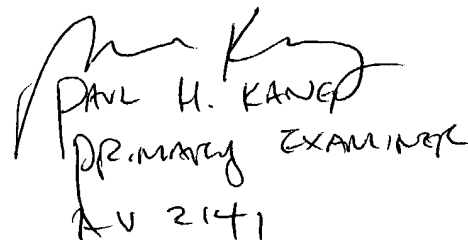 PAUL H. KANG
PRIMARY EXAMINER
AU 2141